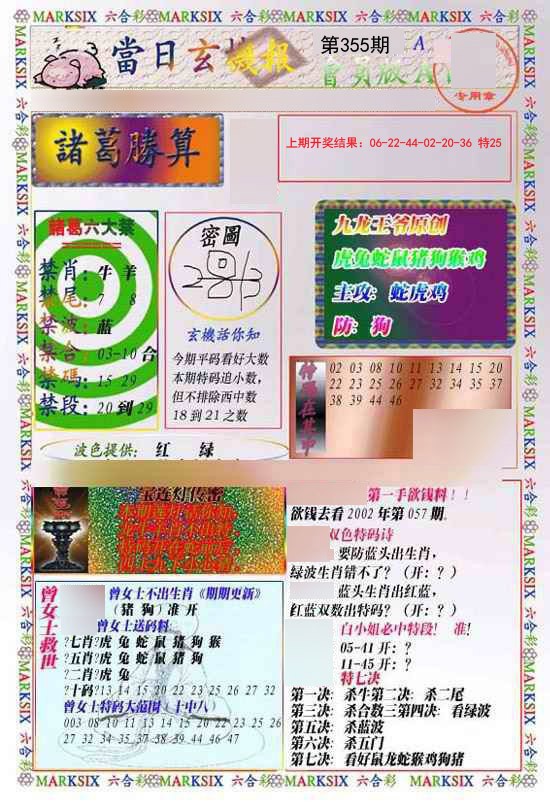 MARKSIX 六合彩 MARKSIX 六合彩 MARKSIX 六合彩 MARKSIX
當日玄機報
第355期 A
會員版A
专用章
諸葛勝算
上期开奖结果：06-22-44-02-20-36 特25
諸葛六大禁
禁肖：牛 羊
禁尾： 7 8
禁波：蓝
禁合：03-10 合
禁碼：15 29
禁段：20 到 29
密圖
玄機話你知
今期平码看好大数
本期特码追小数,
但不排除西中数
18 到 21 之数
波色提供： 红 绿
九龙王爷原创
虎兔蛇鼠猪狗猴鸡
主攻：蛇虎鸡
防：狗
特碼在其中
02 03 08 10 11 13 14 15 20
22 23 25 26 27 32 34 35 37
38 39 44 46
宝莲灯传密
曾女士救世
曾女士不出生肖《期期更新》
（猪 狗）准 开
曾女士送码料
?七肖?虎 兔 蛇 鼠 猪 狗 猴
?五肖?虎 兔 蛇 鼠 猪 狗
?二肖?虎 兔
?十码?13 14 15 20 22 23 25 26 27 32
曾女士特码大范围（十中八）
003 08 10 11 13 14 15 20 22 23 25 26
27 32 34 35 37 38 39 44 46 47
第一手欲钱料！！
欲钱去看 2002 年第 057 期.
双色特码诗
要防蓝头出生肖,
绿波生肖错不了？（开：？）
蓝头生肖出红蓝,
红蓝双数出特码？（开：？）
白小姐必中特段！ 准！
05-41 开：？
11-45 开：？
特七决
第一决：杀牛第二决：杀二尾
第三决：杀合数三第四决：看绿波
第五决：杀蓝波
第六决：杀五门
第七决：看好鼠龙蛇猴鸡狗猪
MARKSIX 六合彩 MARKSIX 六合彩 MARKSIX 六合彩 MARKSIX